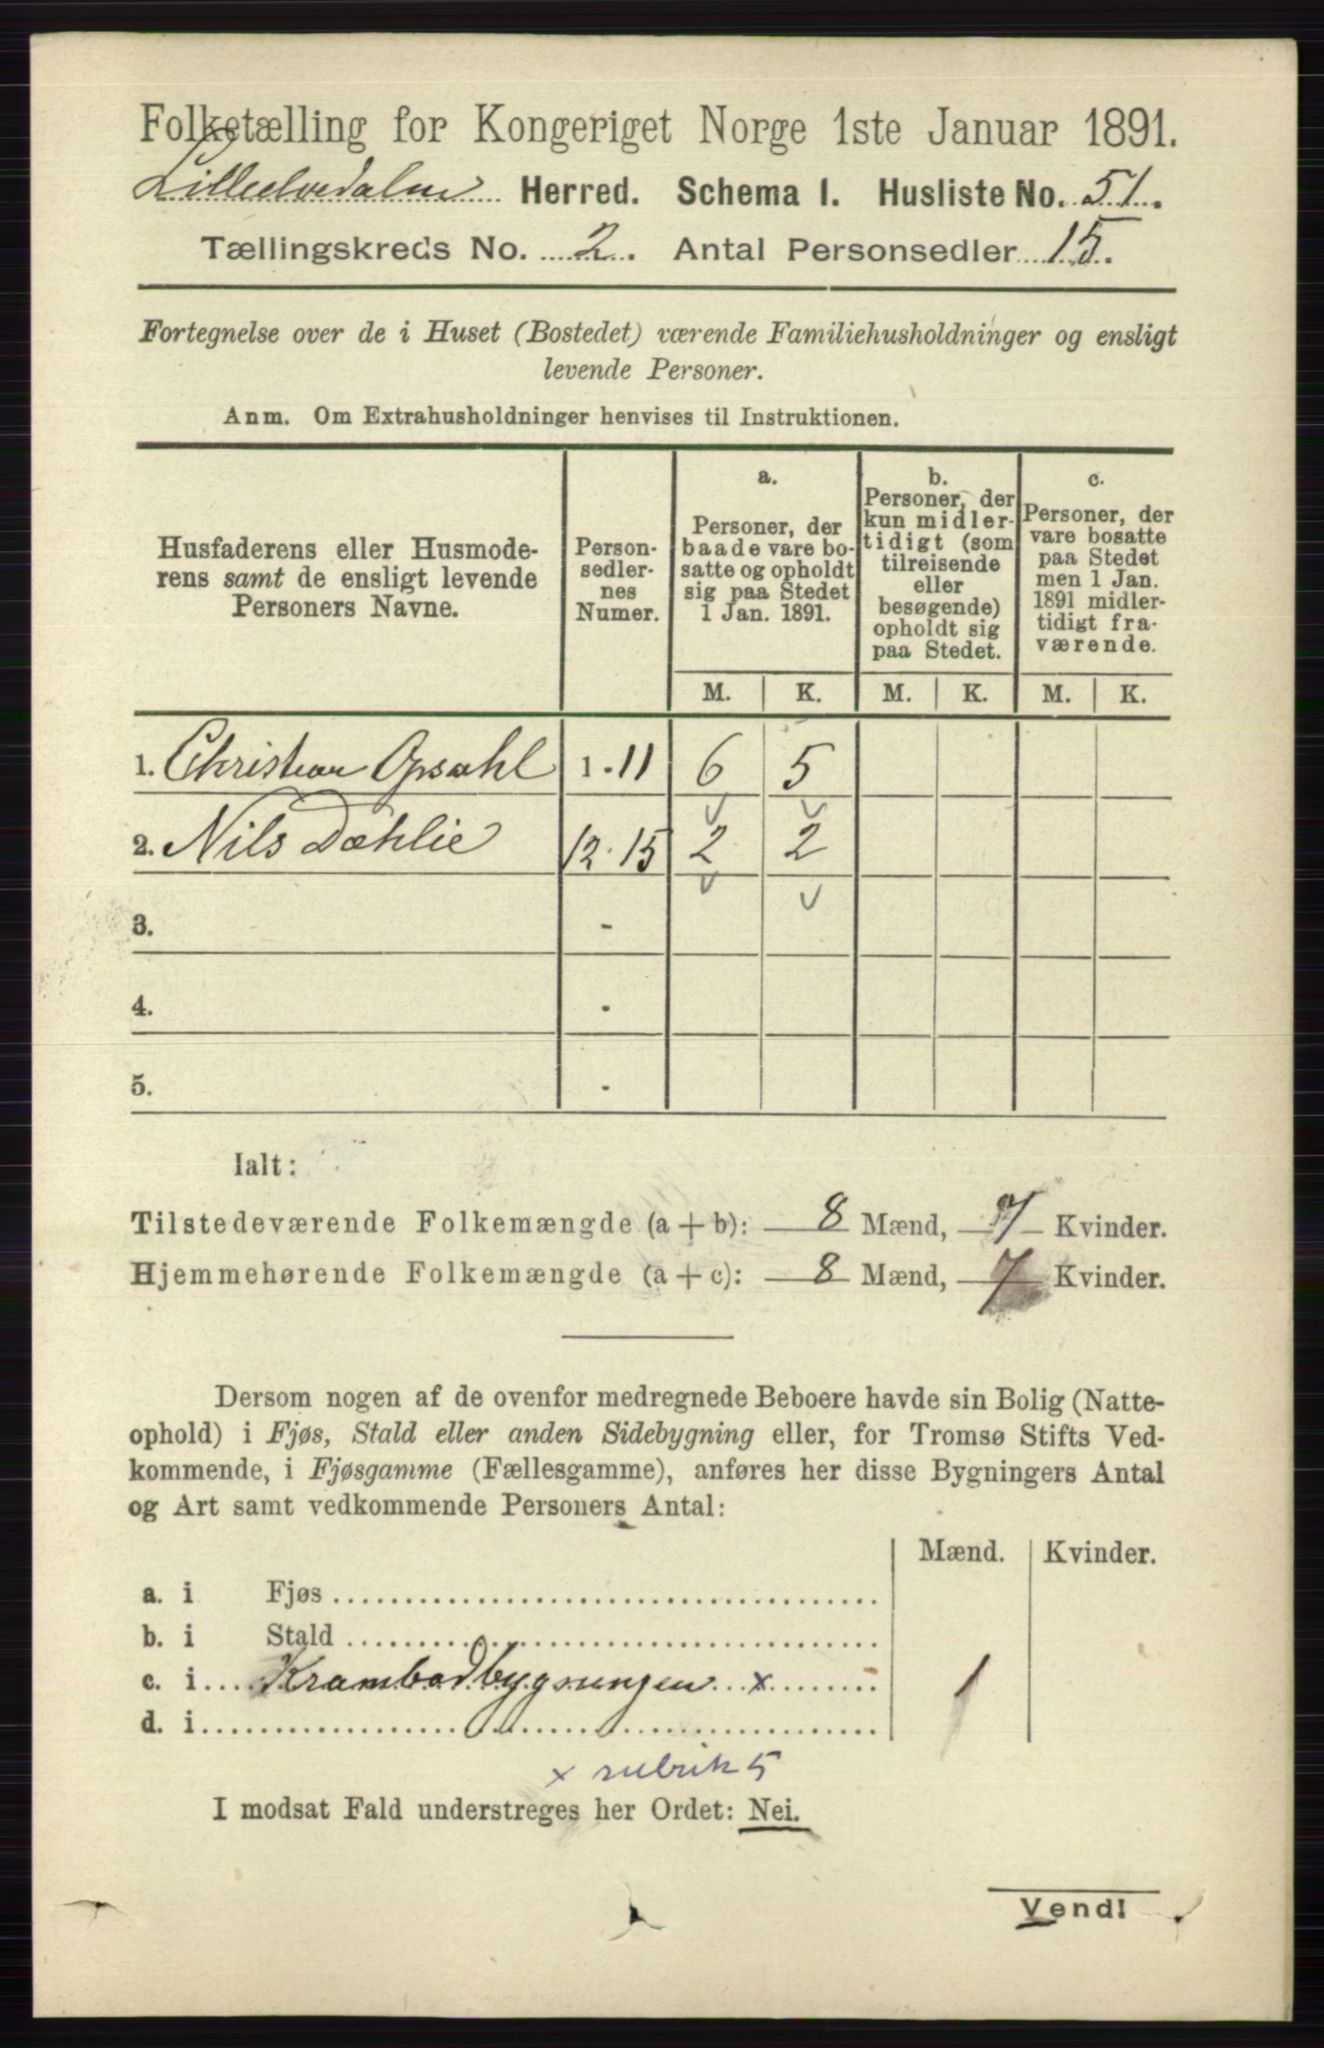 Folketælling for Kongeriget Norge 1ste Januar 1891.
Lilleelvedalen Herred. Schema I. Husliste No. 51.
Tællingskreds No. 2. Antal Personsedler 15.
Fortegnelse over de i Huset (Bostedet) værende Familiehusholdninger og ensligt
levende Personer.
Anm. Om Extrahusholdninger henvises til Instruktionen.
Husfaderens eller Husmode-
rens samt de ensligt levende
Personers Navne.
Person-
sedler-
nes
Numer.
a.
Personer, der
baade vare bo-
satte og opholdt
sig paa Stedet
1 Jan. 1891.
b.
Personer, der
kun midler-
tidigt (som
tilreisende
eller
besøgende)
opholdt sig
paa Stedet.
c.
Personer, der
vare bosatte
paa Stedet
men 1 Jan.
1891 midler-
tidigt fra-
værende.
M. K. M. K. M. K.
1. Christian Opsahl 1 - 11 6 5
2. Nils Dæhlie 12 - 15 2 2
3. -
4. -
5. -
Ialt:
Tilstedeværende Folkemængde (a + b): 8 Mænd, 7 Kvinder.
Hjemmehørende Folkemængde (a + c): 8 Mænd, 7 Kvinder.
Dersom nogen af de ovenfor medregnede Beboere havde sin Bolig (Natte-
ophold) i Fjøs, Stald eller anden Sidebygning eller, for Tromsø Stifts Ved-
kommende, i Fjøsgamme (Fællesgamme), anføres her disse Bygningers Antal
og Art samt vedkommende Personers Antal:
Mænd. Kvinder.
a. i Fjøs
b. i Stald
c. i Krambodbygningen x 1
d. i
x rubrik 5
I modsat Fald understreges her Ordet: Nei.
Vend!